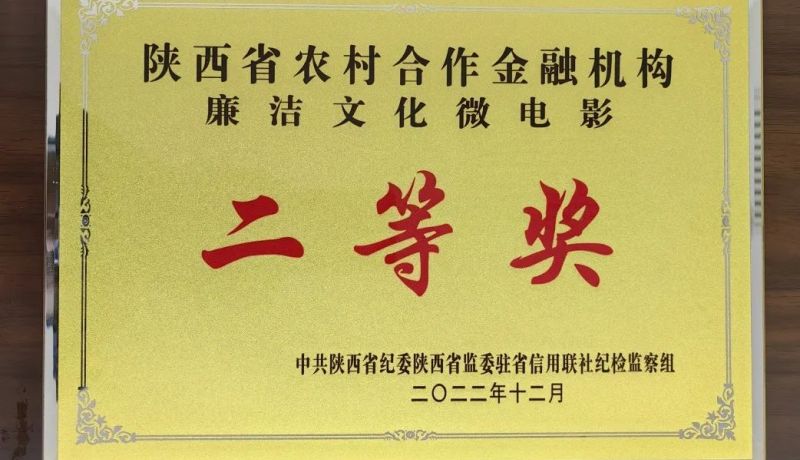 陕西省农村合作金融机构
廉洁文化微电影
二等奖
中共陕西省纪委陕西省监委驻省信用联社纪检监察组
二〇二二年十二月